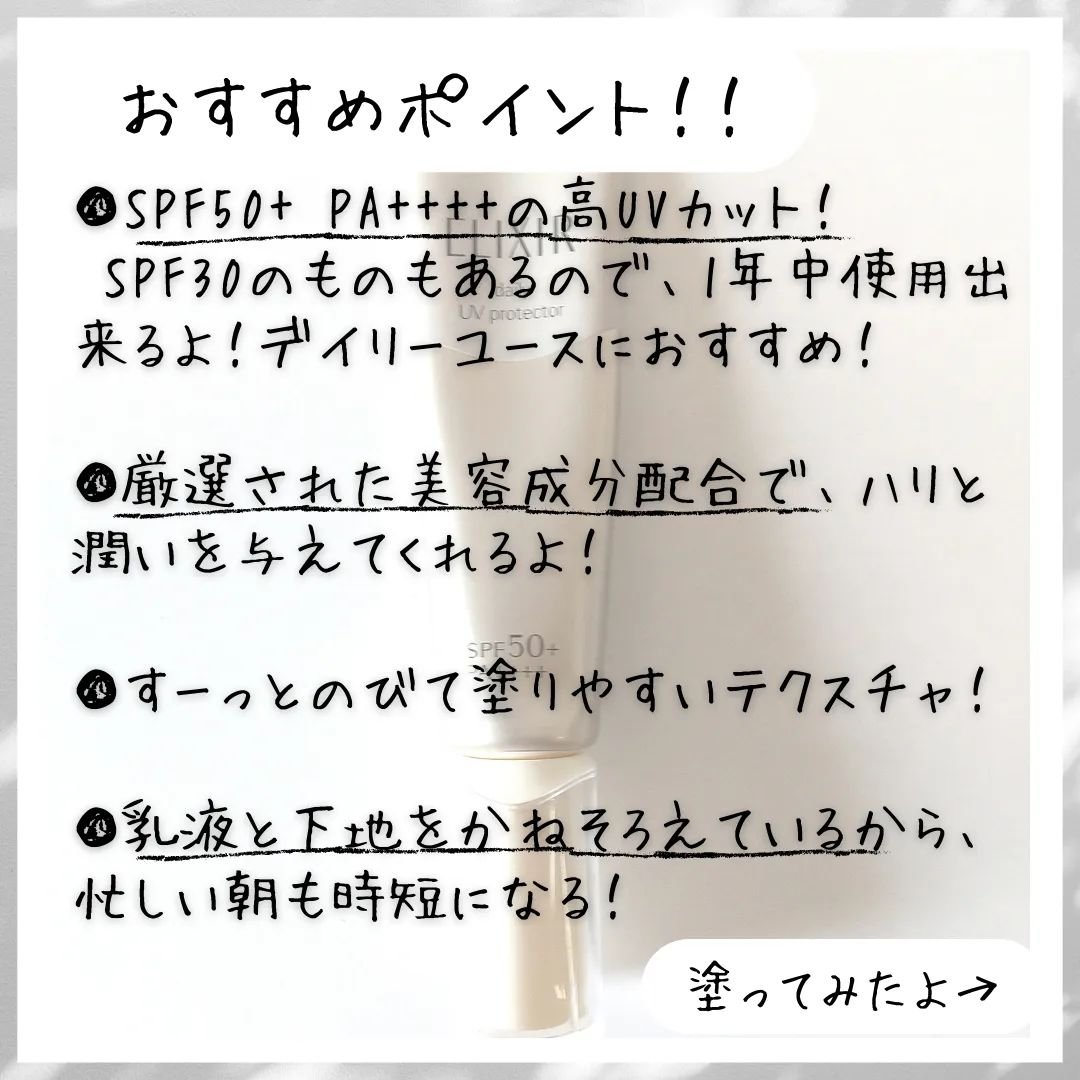 おすすめポイント!!
●SPF50+ PA++++の高UVカット!
SPF30のものもあるので、1年中使用出
来るよ!デイリーユースにおすすめ!
●厳選された美容成分配合で、ハリと
潤いを与えてくれるよ!
●すーっとのびて塗りやすいテクスチャ!
●乳液と下地をかねそろえているから、
忙しい朝も時短になる!
塗ってみたよ→
ELIXIR
UV protector
SPF50+